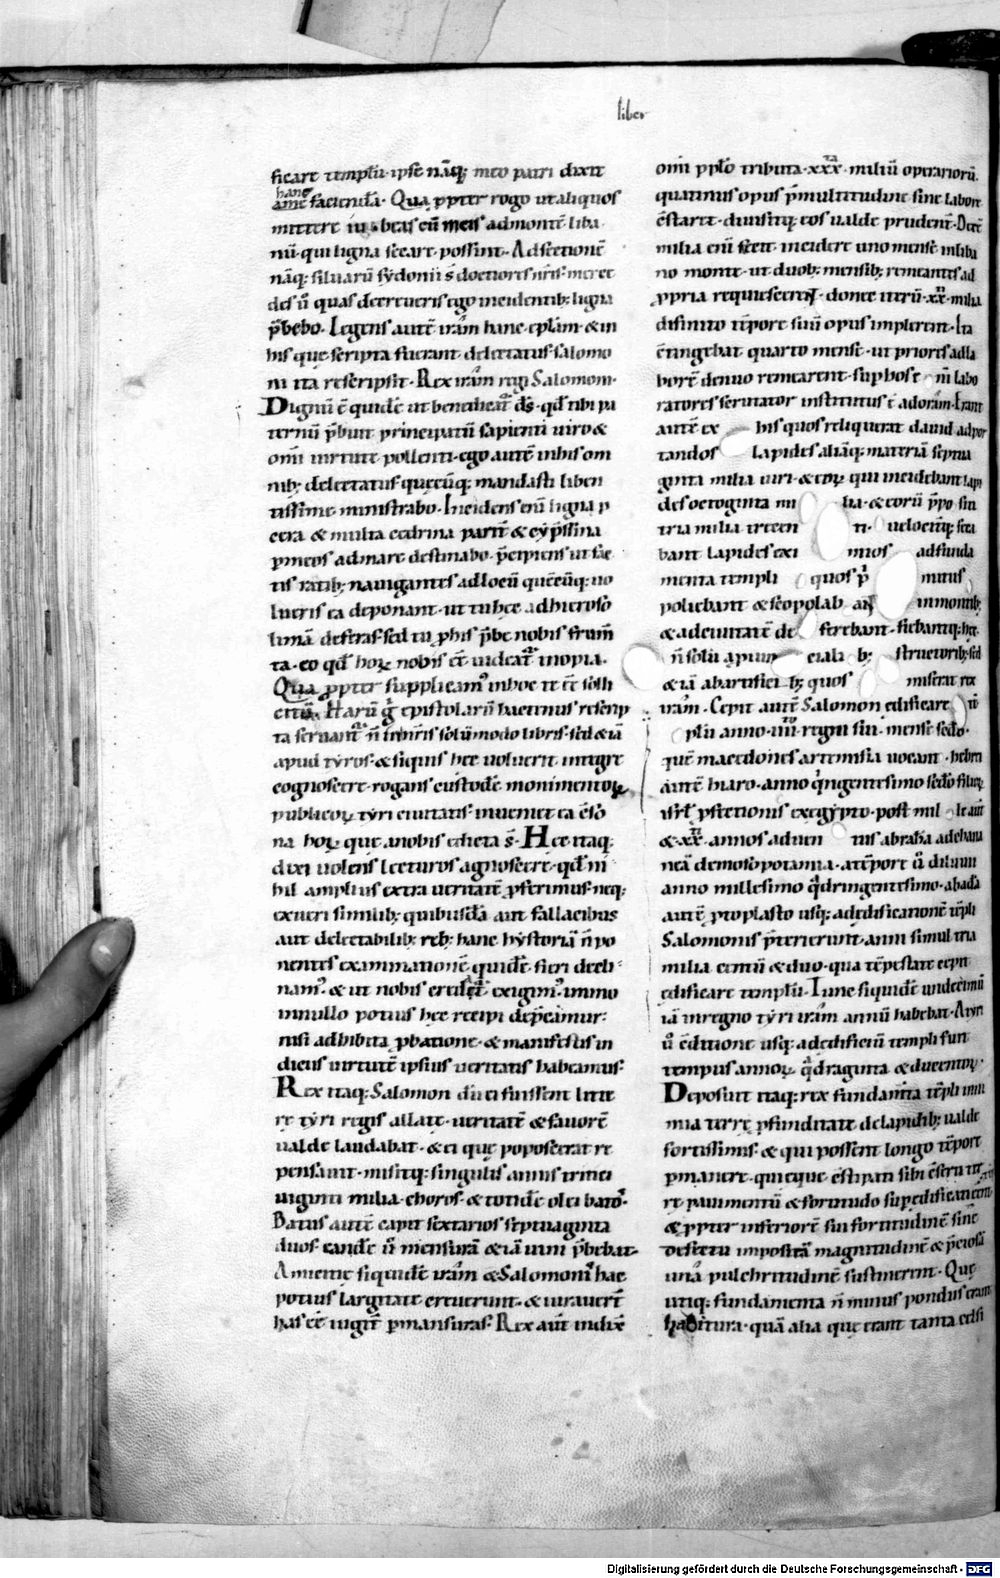 liber
ficare templū· ipse nāq; meo patri dixit
hanc
a me faciendā. Qua ꝓpter rogo ut aliquos
mittere iubeas cū meis ad montē liba
nū· qui ligna secare possint. Ad sectionē
nāq; siluarū sydonii s̄ doctiores nr̄is· merce
des ū quas decreueris ego incidentib; ligna
p̄bebo. Legens autē irām hanc eplām· & in
his que scripta fuerant delectatus salomo
ni ita rescripsit. Rex irām regi Salomoni.
Dignū ē quidē ut benedicat᷑ ds̄· qd̄ tibi pa
ternū p̄buit principatū sapienti uiro &
omi uirtute pollenti· ego autē in his om
nib; delectatus quęcūq; mandasti liben
tissime ministrabo. Incidens eni ligna p
cera & multa cedrina partē & cyp̄ssina
p meos ad mare destinabo· p̄cipiens ut fac
tis ratib; nauigantes ad locū quēcūq; uo
lueris ea deponant· ut tu hęc ad hieroso
limā deferas· sed tu ꝓhis p̄be nobis frum̄
ta· eo qd̄ hoꝝ nobis ēē uideat᷑ inopia.
Qua ꝓpter supplicam᷑ in hoc te ēē solli
citū. Harū g̊ epistolarū hactenus rescrip
ta seruant᷑ n̄ in nr̄is solūmodo libris· sed & iā
apud tyros· & siquis hęc uoluerit integre
cognoscere· rogans custodē monimentoꝝ
publicoꝝ tyri ciuitatis· inueniet ea c̄so
na hoꝝ que a nobis edicta s̄. Hęc itaq;
dixi uolens lecturos agnoscere· qd̄ ni
hil amplius extra ueritatē ꝓferimus· neq;
exueri similib; quibusdā aut fallacibus
aut delectabilib; reb; hanc hystoriā n̄ po
nentes examinationē quidē fieri decli
nam᷑· & ut nobis credat᷑ exigim᷑· immo
in nullo potius hęc recipi dep̄camur·
nisi adhibita ꝓbatione· & manifestis in
diciis uirtutē ipsius ueritatis habeamus.
Rex itaq; Salomon dū ei fuissent litte
rę tyri regis allate· ueritatē & fauorē
ualde laudabat· & ei quę poposcerat re
pensauit· misitq; singulis annis tritici
uiginti milia choros· & totidē olei batos.
Batus autē capit sextarios septuaginta
duos· eandē ū mensurā & iā uini p̄bebat.
Amicitię siquidē irām & Salomoni hac
potius largitate creuerunt· & iurauerūt
has ēē iugit᷑ p mansuras. Rex aut̄ indixē
omi pplo tributa· xxx· miliū operariorū·
quatinus opus p̄ multitudine sine labore
c̄staret· diuisitq; eos ualde prudent̄. Decē
milia eni fecit incidere uno mense in liba
no monte· ut duob; mensib; remeantes ad
ꝓpria requiescerent· donec iterū· xx· milia
definito tēpore suū opus implerent. Ita
c̄tingebat quarto mense· ut priores ad la
borē denuo remearent· sup hos e ni labo
ratores scrutator institutus ē adoram. Erant
autē ex his quos reliquerat dauid ad por
tandos lapides aliāq; materiā septua
ginta milia uiri· & eoꝝ qui incidebant lapi
des octoginta mi lia· & eorū p̄po siti
tria milia trecen ti· uelociꝪq; seca
bant lapides exi mios ad funda
menta templi quos p̄ mitus
poliebant & scopolab ant in montib;
& ad ciuitatē de ferebant· fiebantq; hęc
n̄ solū a ꝓuin cialib; structorib; sed
& iā ab artifici b; quos miserat rex
irām. Cepit autē Salomon edificare tē
plū anno· iiii· regni sui· mense sedo·
quē macedones artemisia uocant· hebrei
autē hiaro· anno q̇ngentesimo sedo filioꝝ
isrl̄ ꝓfectionis ex egypto· post mil le aut̄
& xx· annos aduen tus abraha a de hana
nea de mosopotamia· a tēpore ū diluuii
anno millesimo q̇dringentesimo· ab ada
autē ꝓtoplasto usq; ad edificationē tēpli
Salomonis p̄terierunt· anni simul tria
milia centū & duo· qua tēpestate cepit
edificare templū. Iunc siquidē undecimū
iā in regno tyri irām annū habebat. A tyri
ū c̄ditione usq; ad edificiū templi fuit
tempus annoꝝ q̇draginta & ducentoꝝ.
Deposuit itaq; rex fundam̄ta tēpli inni
mia terrę ꝓfunditate de lapidib; ualde
fortissimis· & qui possent longo tēpore
p manere· quique c̄stipati sibi c̄seruare
re pauimentū & fortitudo sup edificatiōnis
& ꝓpter inferiorē sui fortitudinē sine
defectu impositā magnitudinē & p̄ciosā
una pulchritudinē sustinerent. Quę
utiq; fundamenta n̄ minus pondus erant
habitura· quā alia quę erant tanta celsi
Digitalisierung gefördert durch die Deutsche Forschungsgemeinschaft - DFG